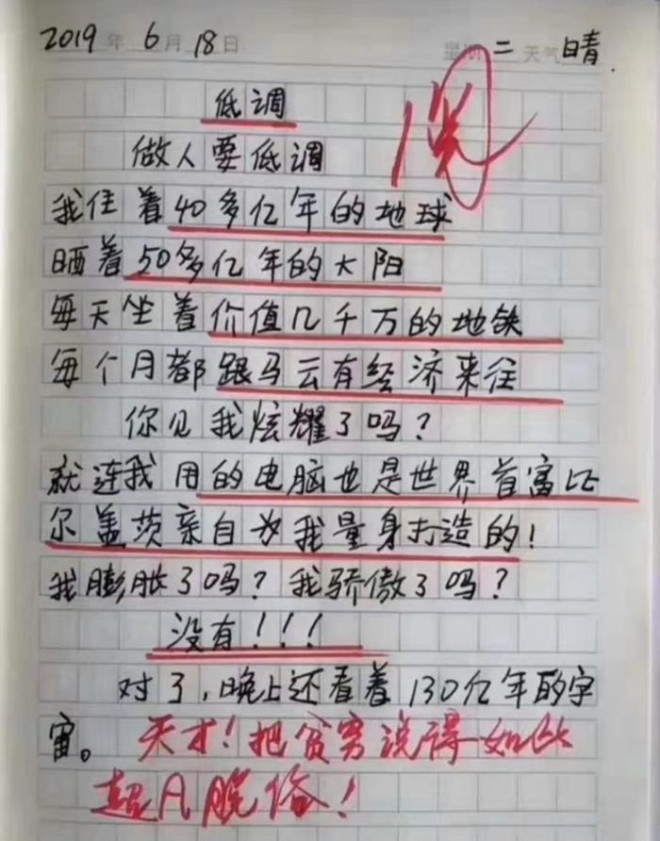 2019年6月18日 星期二 天气晴
低调
做人要低调
我住着40多亿年的地球
晒着50多亿年的太阳
每天坐着价值几千万的地铁
每个月都跟马云有经济来往
你见我炫耀了吗？
就连我用的电脑也是世界首富比
尔盖茨亲自为我量身打造的！
我膨胀了吗？我骄傲了吗？
没有！！！
对了，晚上还看着130亿年的宇
宙。天才！把贫穷说得如此
超凡脱俗！